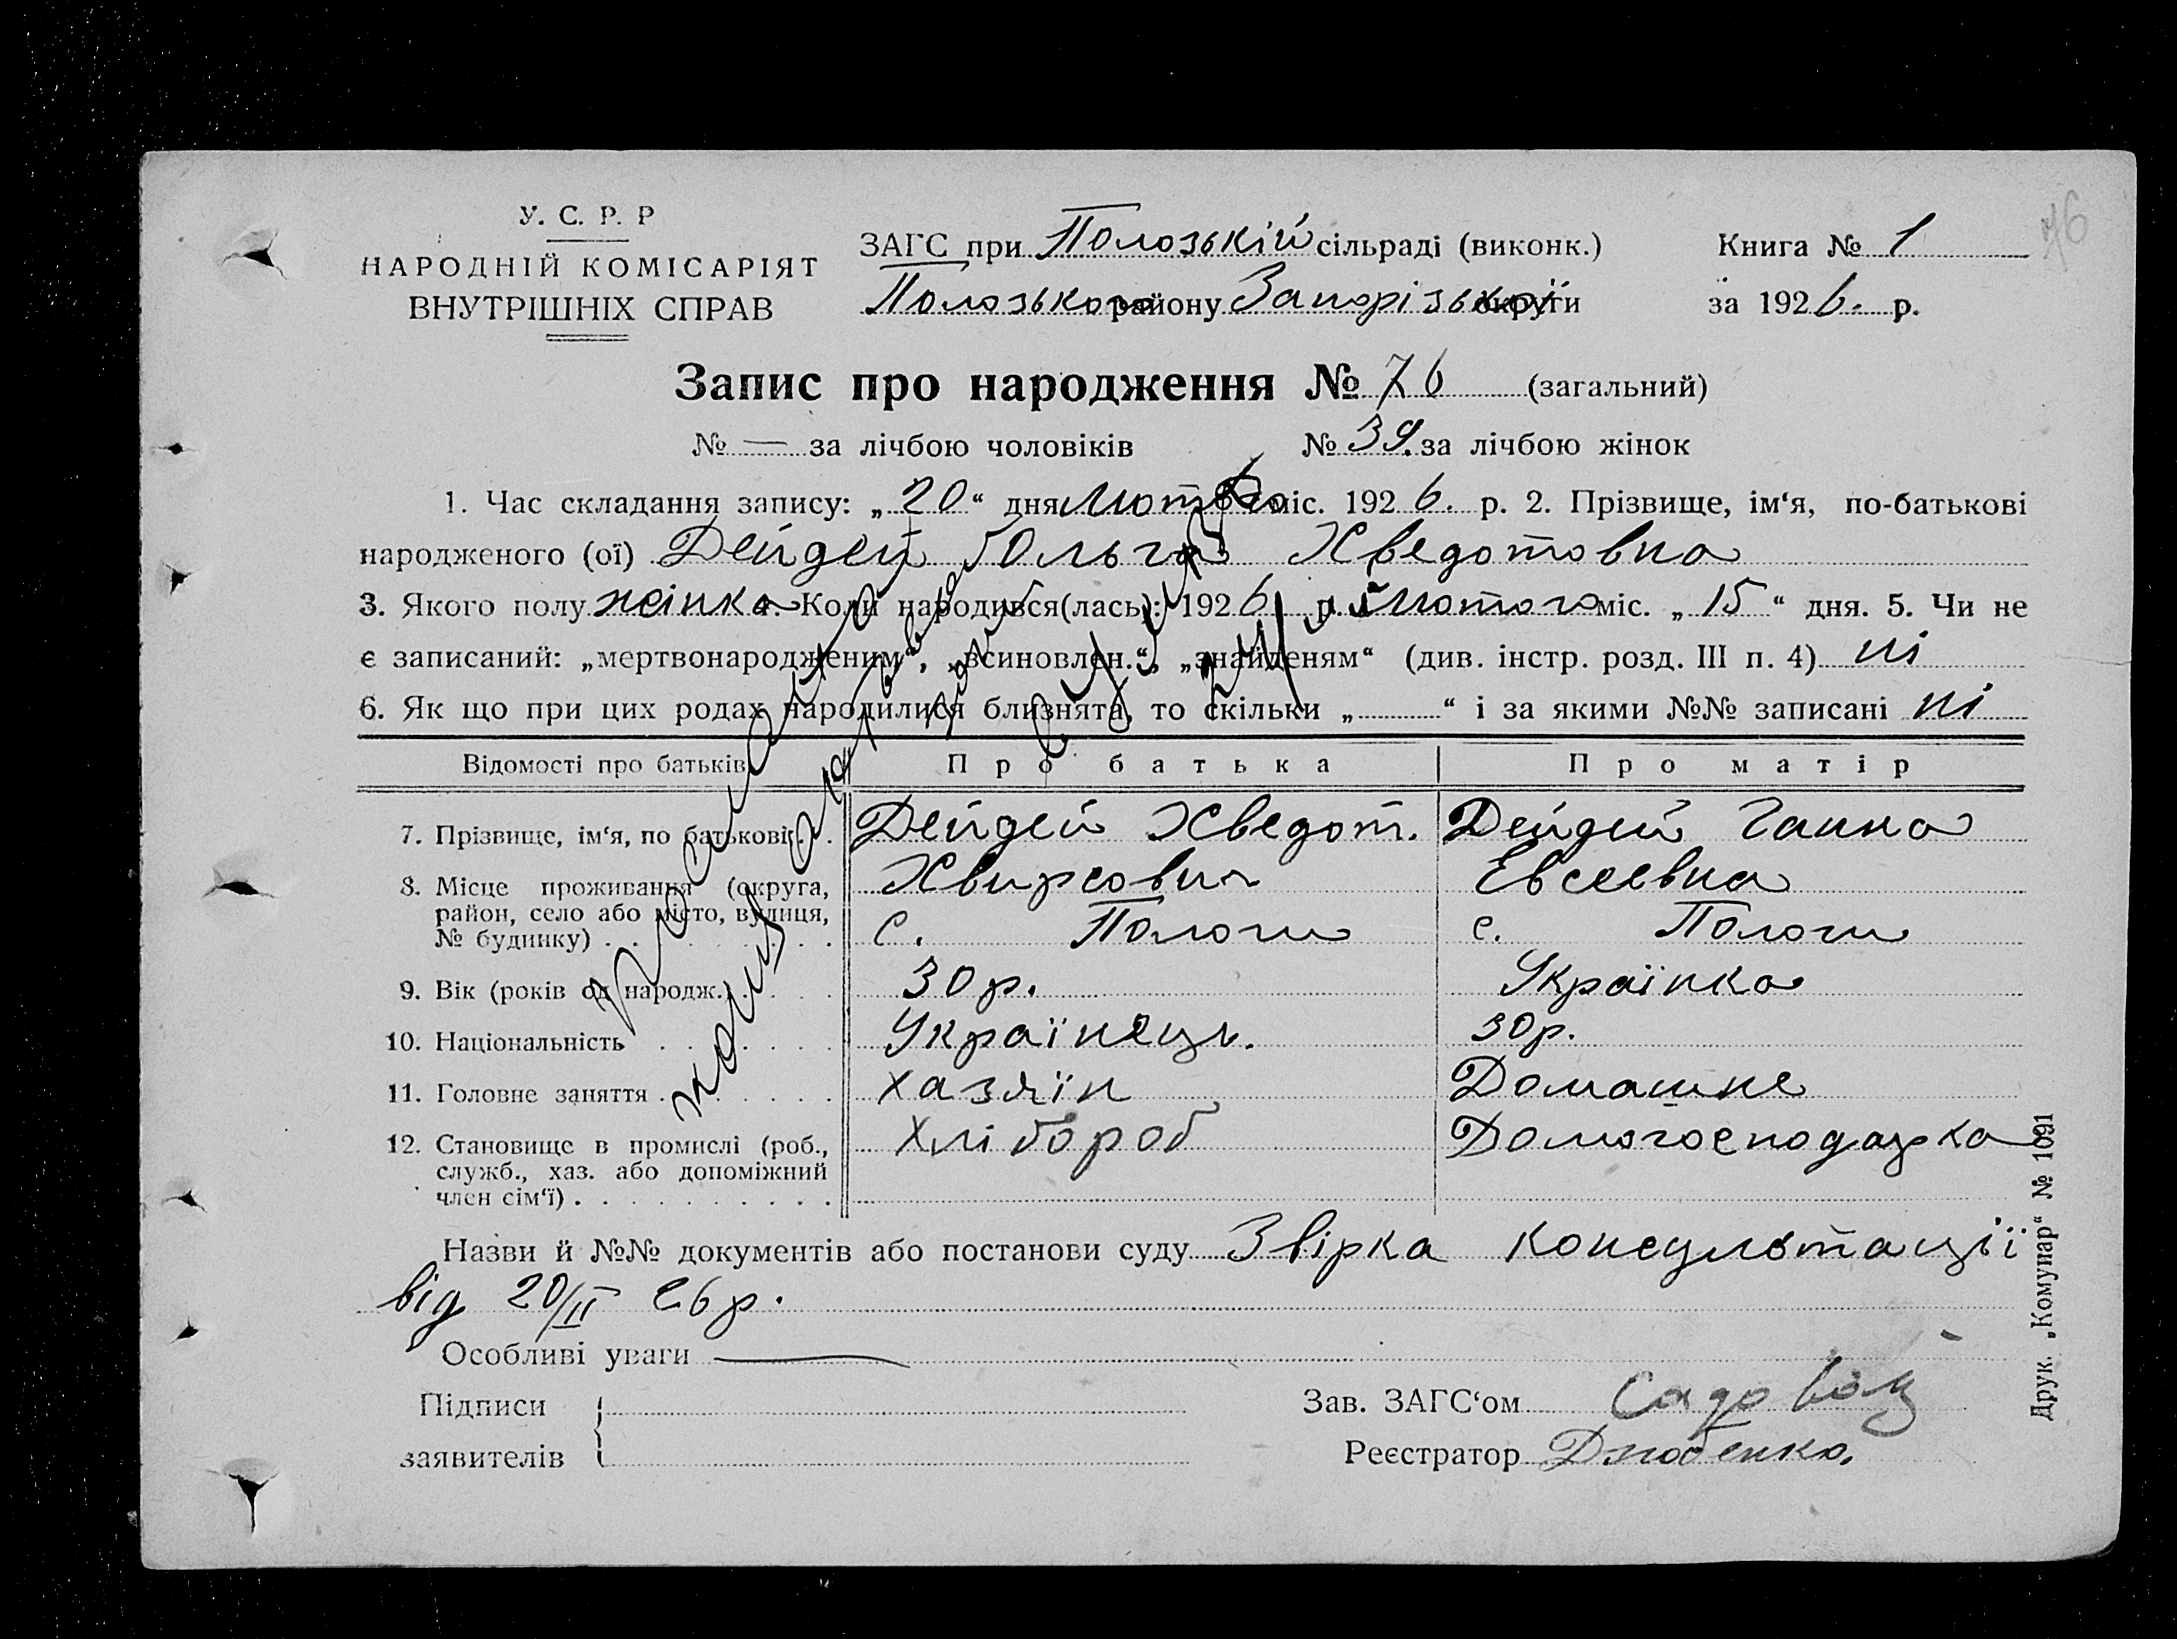 76
У. С. Р. Р
НАРОДНІЙ КОМІСАРІЯТ
ВНУТРІШНІХ СПРАВ
ЗАГС при Полозькій сільраді (виконк.) Книга № 1
Полозького району Запорізької округи за 1926. р.
Запис про народження № 76 (загальний)
№ — за лічбою чоловіків № 39. за лічбою жінок
1. Час складання запису: „20“ дня Лютого міс. 1926. р. 2. Прізвище, ім‘я, по-батькові
народженого (ої) Дейдей Ольга Хведотовна
3. Якого полу жінка 4. Коли народився(лась): 1926 р. Лютого міс. „15“ дня. 5. Чи не
є записаний: „мертвонародженим“, „всиновлен.“, „знайденям“ (див. інстр. розд. III п. 4) ні
6. Як що при цих родах народилися близнята, то скільки „ “ і за якими №№ записані ні
Відомості про батьків Про батька Про матір
7. Прізвище, ім‘я, по батькові Дейдей Хведот. Дейдей Ганна
Евсеевна
8. Місце проживання (округа,
район, село або місто, вулиця,
№ будинку) с. Пологи с. Пологи
9. Вік (років од народж.) 30 р. Українка
10. Національність Українець. 30 р.
11. Головне заняття хазяїн Домашне
12. Становище в промислі (роб., Хлібороб Домогосподарка
служб., хаз. або допоміжний
член сім‘ї)
Назви й №№ документів або постанови суду Звірка консультації
від 20/II 26 р.
Особливі уваги —
Підписи
заявителів
Зав. ЗАГС‘ом Садовой
Реєстратор
Друк. „Комунар“ № 1091